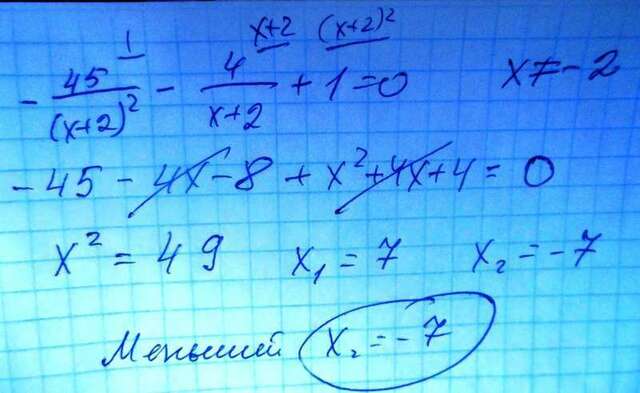 1 x+2 (x+2)²
- 45/(x+2)² - 4/x+2 + 1 = 0 x ≠ -2
- 45 - 4x - 8 + x² + 4x + 4 = 0
x² = 49 x₁ = 7 x₂ = -7
Меньший x₂ = -7